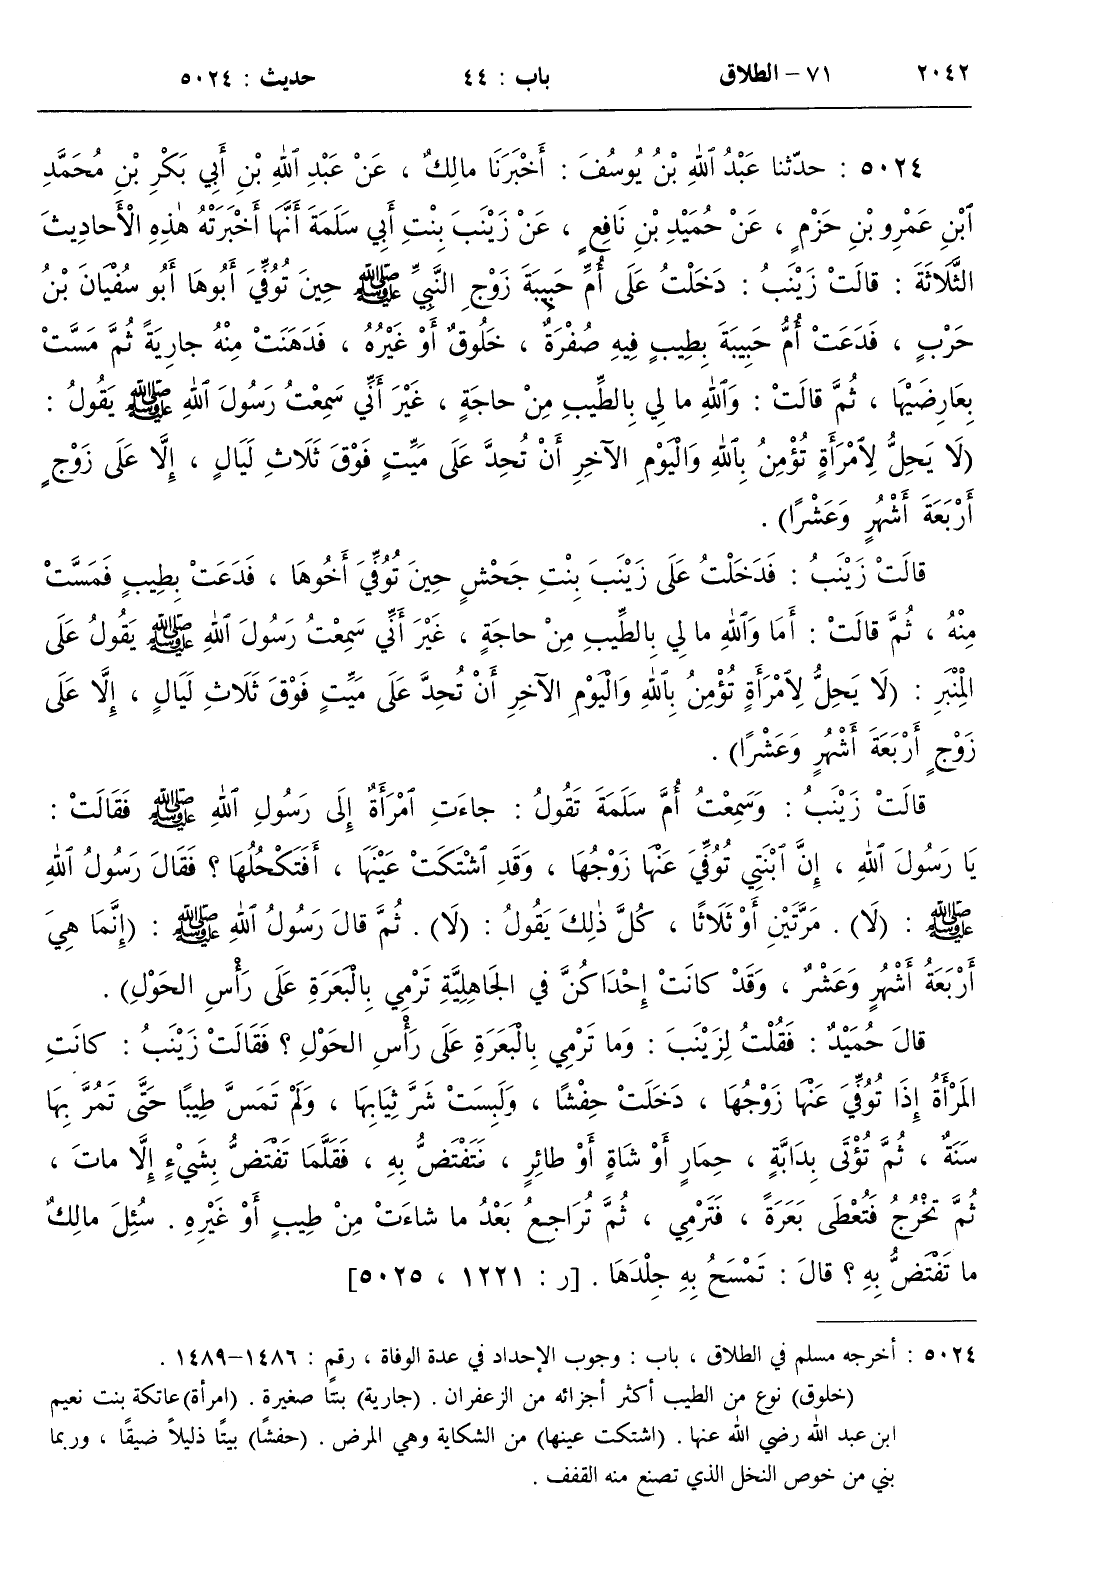 ٢٠٤٢ ٧١ - الطلاق باب : ٤٤ حديث : ٥٠٢٤
٥٠٢٤ : حدّثنا عَبْدُ ٱللهِ بْنُ يُوسُفَ : أَخْبَرَنَا مالِكٌ ، عَنْ عَبْدِ ٱللهِ بْنِ أَبِي بَكْرِ بْنِ مُحَمَّدِ
ٱبْنِ عَمْرِو بْنِ حَزْمٍ ، عَنْ حُمَيْدِ بْنِ نَافِعٍ ، عَنْ زَيْنَبَ بِنْتِ أَبِي سَلَمَةَ أَنَّهَا أَخْبَرَتْهُ هٰذِهِ الْأَحادِيثَ
الثَّلَاثَةَ : قالَتْ زَيْنَبُ : دَخَلْتُ عَلَى أُمِّ حَبِيبَةَ زَوْجِ النَّبِيِّ ﷺ حِينَ تُوُفِّيَ أَبُوهَا أَبُو سُفْيَانَ بْنُ
حَرْبٍ ، فَدَعَتْ أُمُّ حَبِيبَةَ بِطِيبٍ فِيهِ صُفْرَةٌ ، خَلُوقٌ أَوْ غَيْرُهُ ، فَدَهَنَتْ مِنْهُ جارِيَةً ثُمَّ مَسَّتْ
بِعَارِضَيْهَا ، ثُمَّ قالَتْ : وَٱللهِ ما لِي بِالطِّيبِ مِنْ حاجَةٍ ، غَيْرَ أَنِّي سَمِعْتُ رَسُولَ ٱللهِ ﷺ يَقُولُ :
(لَا يَحِلُّ لِٱمْرَأَةٍ تُؤْمِنُ بِٱللهِ وَالْيَوْمِ الآخِرِ أَنْ تُحِدَّ عَلَى مَيِّتٍ فَوْقَ ثَلَاثِ لَيَالٍ ، إِلَّا عَلَى زَوْجٍ
أَرْبَعَةَ أَشْهُرٍ وَعَشْرًا) .
قالَتْ زَيْنَبُ : فَدَخَلْتُ عَلَى زَيْنَبَ بِنْتِ جَحْشٍ حِينَ تُوُفِّيَ أَخُوهَا ، فَدَعَتْ بِطِيبٍ فَمَسَّتْ
مِنْهُ ، ثُمَّ قالَتْ : أَمَا وَٱللهِ ما لِي بِالطِّيبِ مِنْ حاجَةٍ ، غَيْرَ أَنِّي سَمِعْتُ رَسُولَ ٱللهِ ﷺ يَقُولُ عَلَى
الْمِنْبَرِ : (لَا يَحِلُّ لِٱمْرَأَةٍ تُؤْمِنُ بِٱللهِ وَالْيَوْمِ الآخِرِ أَنْ تُحِدَّ عَلَى مَيِّتٍ فَوْقَ ثَلَاثِ لَيَالٍ ، إِلَّا عَلَى
زَوْجٍ أَرْبَعَةَ أَشْهُرٍ وَعَشْرًا) .
قالَتْ زَيْنَبُ : وَسَمِعْتُ أُمَّ سَلَمَةَ تَقُولُ : جاءَتِ ٱمْرَأَةٌ إِلَى رَسُولِ ٱللهِ ﷺ فَقَالَتْ :
يَا رَسُولَ ٱللهِ ، إِنَّ ٱبْنَتِي تُوُفِّيَ عَنْهَا زَوْجُهَا ، وَقَدِ ٱشْتَكَتْ عَيْنَهَا ، أَفَتَكْحُلُهَا ؟ فَقَالَ رَسُولُ ٱللهِ
ﷺ : (لَا) . مَرَّتَيْنِ أَوْ ثَلَاثًا ، كُلَّ ذٰلِكَ يَقُولُ : (لَا) . ثُمَّ قالَ رَسُولُ ٱللهِ ﷺ : (إِنَّمَا هِيَ
أَرْبَعَةُ أَشْهُرٍ وَعَشْرٌ ، وَقَدْ كانَتْ إِحْدَاكُنَّ فِي الجَاهِلِيَّةِ تَرْمِي بِالْبَعَرَةِ عَلَى رَأْسِ الحَوْلِ) .
قالَ حُمَيْدٌ : فَقُلْتُ لِزَيْنَبَ : وَما تَرْمِي بِالْبَعَرَةِ عَلَى رَأْسِ الحَوْلِ ؟ فَقَالَتْ زَيْنَبُ : كانَتِ
المَرْأَةُ إِذَا تُوُفِّيَ عَنْهَا زَوْجُهَا ، دَخَلَتْ حِفْشًا ، وَلَبِسَتْ شَرَّ ثِيَابِهَا ، وَلَمْ تَمَسَّ طِيبًا حَتَّى تَمُرَّ بِهَا
سَنَةٌ ، ثُمَّ تُؤْتَى بِدَابَّةٍ ، حِمَارٍ أَوْ شَاةٍ أَوْ طائِرٍ ، فَتَفْتَضُّ بِهِ ، فَقَلَّمَا تَفْتَضُّ بِشَيْءٍ إِلَّا ماتَ ،
ثُمَّ تَخْرُجُ فَتُعْطَى بَعَرَةً ، فَتَرْمِي ، ثُمَّ تُرَاجِعُ بَعْدُ ما شاءَتْ مِنْ طِيبٍ أَوْ غَيْرِهِ . سُئِلَ مالِكٌ
ما تَفْتَضُّ بِهِ ؟ قالَ : تَمْسَحُ بِهِ جِلْدَهَا . [ر : ١٢٢١ ، ٥٠٢٥]
٥٠٢٤ : أخرجه مسلم في الطلاق ، باب : وجوب الإحداد في عدة الوفاة ، رقم : ١٤٨٦-١٤٨٩ .
(خلوق) نوع من الطيب أكثر أجزائه من الزعفران . (جارية) بنتًا صغيرة . (امرأة) عاتكة بنت نعيم
ابن عبد الله رضي الله عنها . (اشتكت عينها) من الشكاية وهي المرض . (حفشًا) بيتًا ذليلاً ضيقًا ، وربما
بني من خوص النخل الذي تصنع منه القفف .